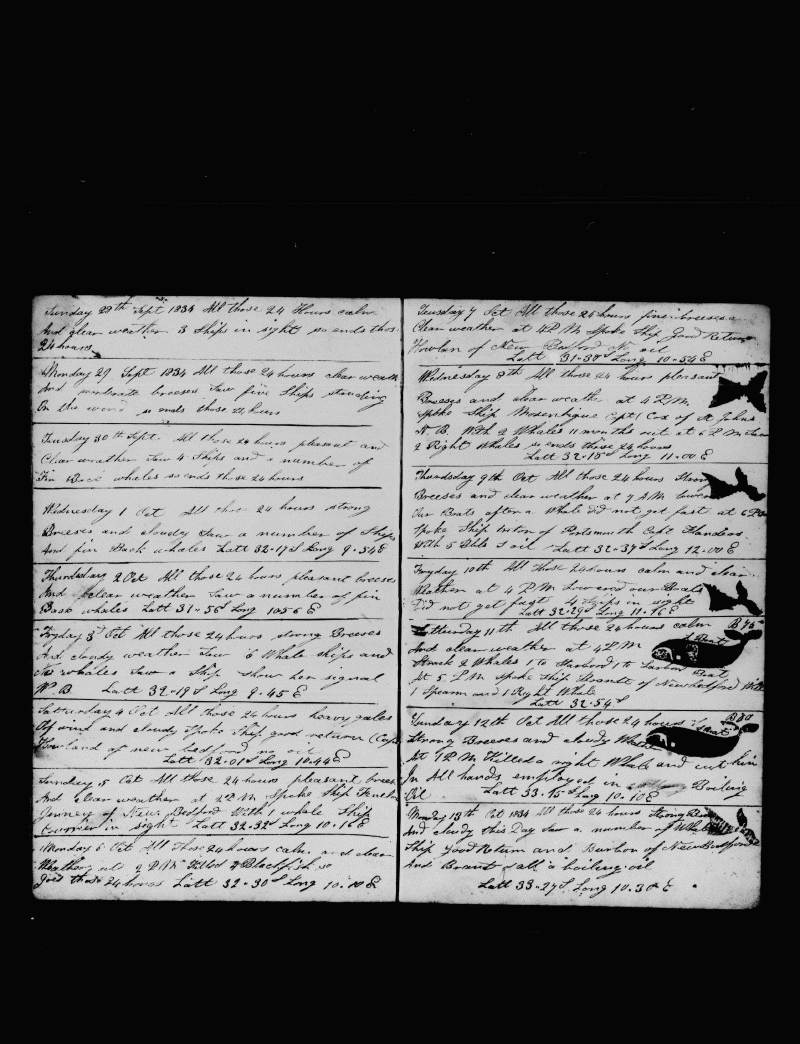 Sunday 28th Sept 1834 All those 24 Hours calm
And clear weather 3 Ships in sight so ends thos
24 hours
Monday 29 Sept 1834 All those 24 hours clear weath
And moderate breeses Saw five Ships standing
On the wind so ends those 24 hours
Tuesday 30th Sept All those 24 hours pleasant and
Clear weather Saw 4 Ships and a number of
Fin Back whales so ends those 24 hours
Wednesday 1 Oct All those 24 hours strong
Breeses and cloudy Saw a number of Ships
And fin Back whales Latt 32-17 S Long 9-54 E
Thursday 2 Oct All those 24 hours pleasant breeses
And clear weather Saw a number of fin
Back whales Latt 31-56 S Long 10 56 E
Fryday 3d Oct All those 24 hours strong Breeses
And cloudy weather Saw 6 Whale ships and
No whales Saw a Ship show her signal
N. B. Latt 32-19 S Long 9-45 E
Satturday 4 Oct All those 24 hours heavy gales
Of wind and cloudy Spoke Ship good return Capt
Howland of new bedford no oil
Latt 32-01 S Long 10.44 E
Sunday 5 Oct All those 24 hours pleasant breeses
And clear weather at 2 P.M Spoke Ship
of New Bedford With 1 whale Ship
in sight Latt 32-32 S Long 10-16 E
Monday 6 Oct All Those 24 hours calm and clear
2 P.M Killed 2 Blackfish so
those 24 hours Latt 32-30 S Long 10.10 E
Teusday 7 Oct All those 24 hours fine breeses a
Clear weather at 4 P M Spoke Ship Good Return
Howlan of New Bedford No oil
Latt 31-38 S Long 10-54 E
Wednesday 8th All those 24 hour pleasant
Breeses and clear weather at 4 P.M.
Spoke Ship Mosentique Capt Cox of St Johns
N. B. With 2 Whales 11 months out at 6 P M Saw
2 Right Whales so ends these 24 hours
Latt 32-18 S Long 11.00 E
Thursdday 9th Oct All those 24 hours Strong
Breeses and clear weather at 7 A.M. lowered
Our Boats after a Whale did not get fast at 6 P.M
Spoke Ship of Portsmouth Capt Flanders
With 5 Bbls S oil Latt 32-37 S Long 12.00 E
Fryday 10th All those 24 hours calm and clear
Wether at 4 P.M Lowered our Boats
Did not get fast 4 Ships in sight
Latt 32-29 S Long 11-16 E
Satterday 11th All those 24 hours calm B 75
And clear weather at 4 P M S Boat
Struck 2 Whales 1 to Starbord 1 to Larbord Boat
At 5 P.M Spoke Ship Brandt of New Bedford With
1 Sperm and 1 Right Whale
Latt 32.54 S
Sunday 12th Oct All those 24 hours B 80
Strong Breeses and cloudy Wether Boat
At 1 P M Killed a right Whale and cut him
In All hands employed in Boiling
Oil Latt 33-15 S Long 10-10 E
Monday 13th Oct 1834 All those 24 hours Strong Breeses
And cloudy this Day Saw a number of Whale
Ship Good Return and Burbon of New Bedford
And Brant all a boiling oil
Latt 33-27 S Long 10.30 E